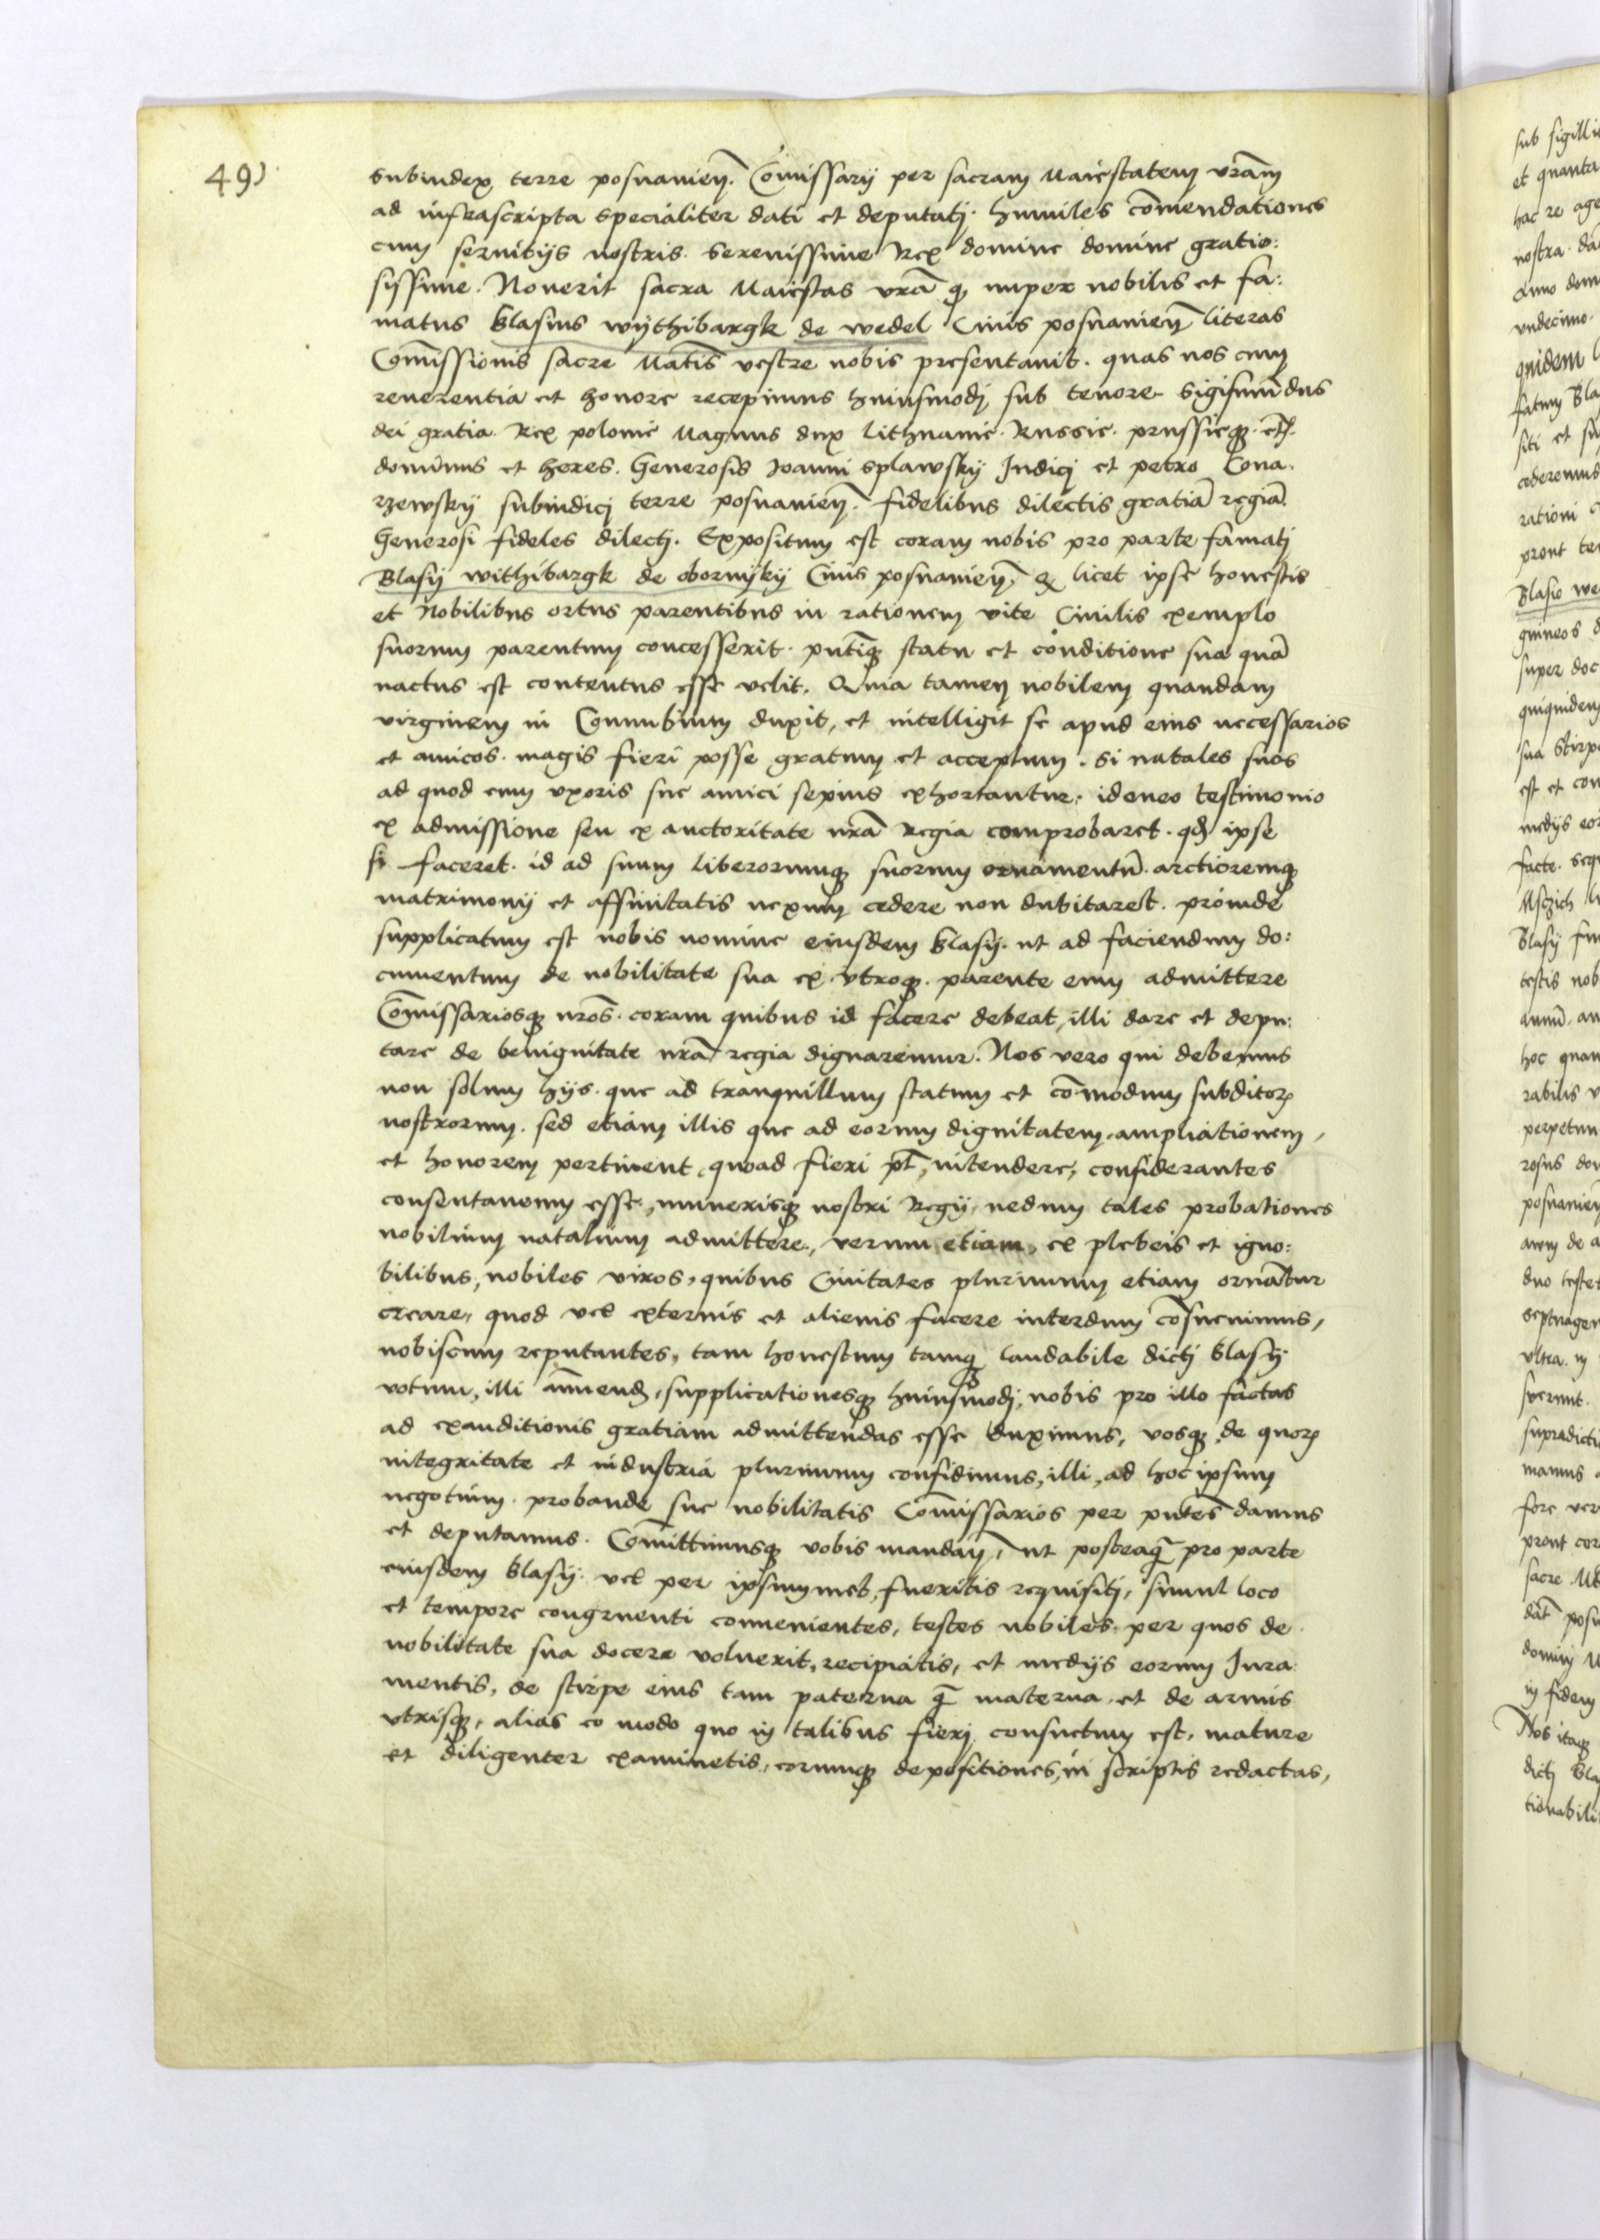 49)
Subiudex terre posnanieñ. Cōmissarij per sacram Maiestatem vrām
ad infrascripta specialiter dati et deputatj. humiles cōmendationes
cum seruitijs nostris. Serenissime Rex domine domine gratio:
sissime. Nouerit sacra Maiestas vrā q nuper nobilis et fa:
matus Blasius wythibargk de wedel Ciuis posnanieñ literas
Cōmissionis sacre Matis vestre nobis presentauit. quas nos cum
reuerentia et honore recepimus huiusmodj sub tenore. Sigismūdus
dei gratia. Rex polonie Magnus dux Lithuanie. Russie. prussieq. etc.
dominus et heres. Generosis Joanni splawsky Judicj et petro Cona.
rzewsky subiudicj terre posnanieñ. fidelibus dilectis gratiā regiā.
Generosi fideles dilectj. Expositum est coram nobis pro parte famatj
Blasij withibargk de obornyky Ciuis posnanieñ. q licet ipse honestis
et Nobilibus ortus parentibus in rationem vite Ciuilis exemplo
suorum parentum concesserit. pntiq statu et conditione sua quā
nactus est contentus esse velit. Quia tamen nobilem quandam
virginem in Connubium duxit, et intelligit se apud eius necessarios
et amicos. magis fieri posse gratum et acceptum. si natales suos
ad quod eum vxoris sue amici sepius exhortantur. ideneo testimonio
ex admissione seu ex auctoritate nrā Regia comprobaret. qđ ipse
si faceret. id ad suum liberorumq suorum ornamentū. arctioremq
matrimonij et affinitatis nexum cedere non dubitaret. proinde
supplicatum est nobis nomine eiusdem Blasij. ut ad faciendum do:
cumentum de nobilitate sua ex vtroq. parente eum admittere
Cōmissariosq nrōs. coram quibus id facere debeat, illi dare et depu:
tare de benignitate nrā regia dignaremur. Nos vero qui debemus
non solum hijs. que ad tranquillum statum et cōmodum subditor
nostrorum. sed etiam illis que ad eorum dignitatem, ampliationem,
et honorem pertinent, quoad fieri pt, intendere, considerantes
consentaneum esse, munerisq nostri Regij, nedum tales probationes
nobilium natalium admittere, verum etiam, ex plebeis et igno:
bilibus, nobiles viros, quibus Ciuitates plurimum etiam ornātur
creare, quod vel externis et alienis facere interdum cōsueuimus,
nobiscum reputantes, tam honestum tamq laudabile dictj Blasij
votum, illi supplicationesq huiusmodj, nobis pro illo factas
ad exauditionis gratiam admittendas esse duximus, vosq de quor
integritate et industria plurimum confidimus, illi, ad hoc ipsum
negotium. probande sue nobilitatis Cōmissarios per pntes damus
et deputamus. Cōmittimusq vobis mandañ, ut posteaq̄ pro parte
eiusdem Blasij. vel per ipsummet, fueritis requisitj, simul loco
et tempore congruenti conuenientes, testes nobiles. per quos de
nobilitate sua docere voluerit, recipiatis, et medijs eorum Jura:
mentis, de stirpe eius tam paterna q̄ materna, et de armis
vtrisq, alias eo modo quo in talibus fierj consuetum est, mature
et diligenter examinetis, eorumq depositiones, in scriptis redactas,
sub sigillis
et quanta
hac re age
nostra. da
Anno dom
vndecimo.
quidem
fatum Bla
siti et su
cederemus
rationi
prout te
Blasio we
guineos
super doc
quiquidem
sua Stirp
est et con
medijs eor
facte. seq
Msczich
Blasij fu
testis nob
annū. an
hoc quan
rabilis v
perpetuu
rosus do
posnanieñ
arem de a
duo teste
septuagen
vltra. in
fuerunt.
supradictu
manus
fore ver
prout cor
sacre. M
dat posn
dominj
in fidem
Nos itaq
dictj Bla
tionabili